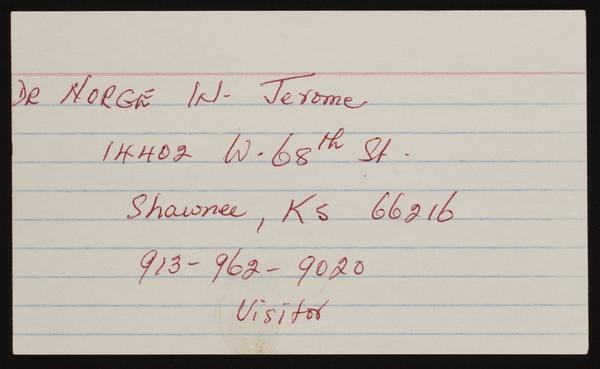 DR NORGE W. Jerome
14402 W. 68th St.
Shawnee, Ks 66216
913-962-9020
Visitor